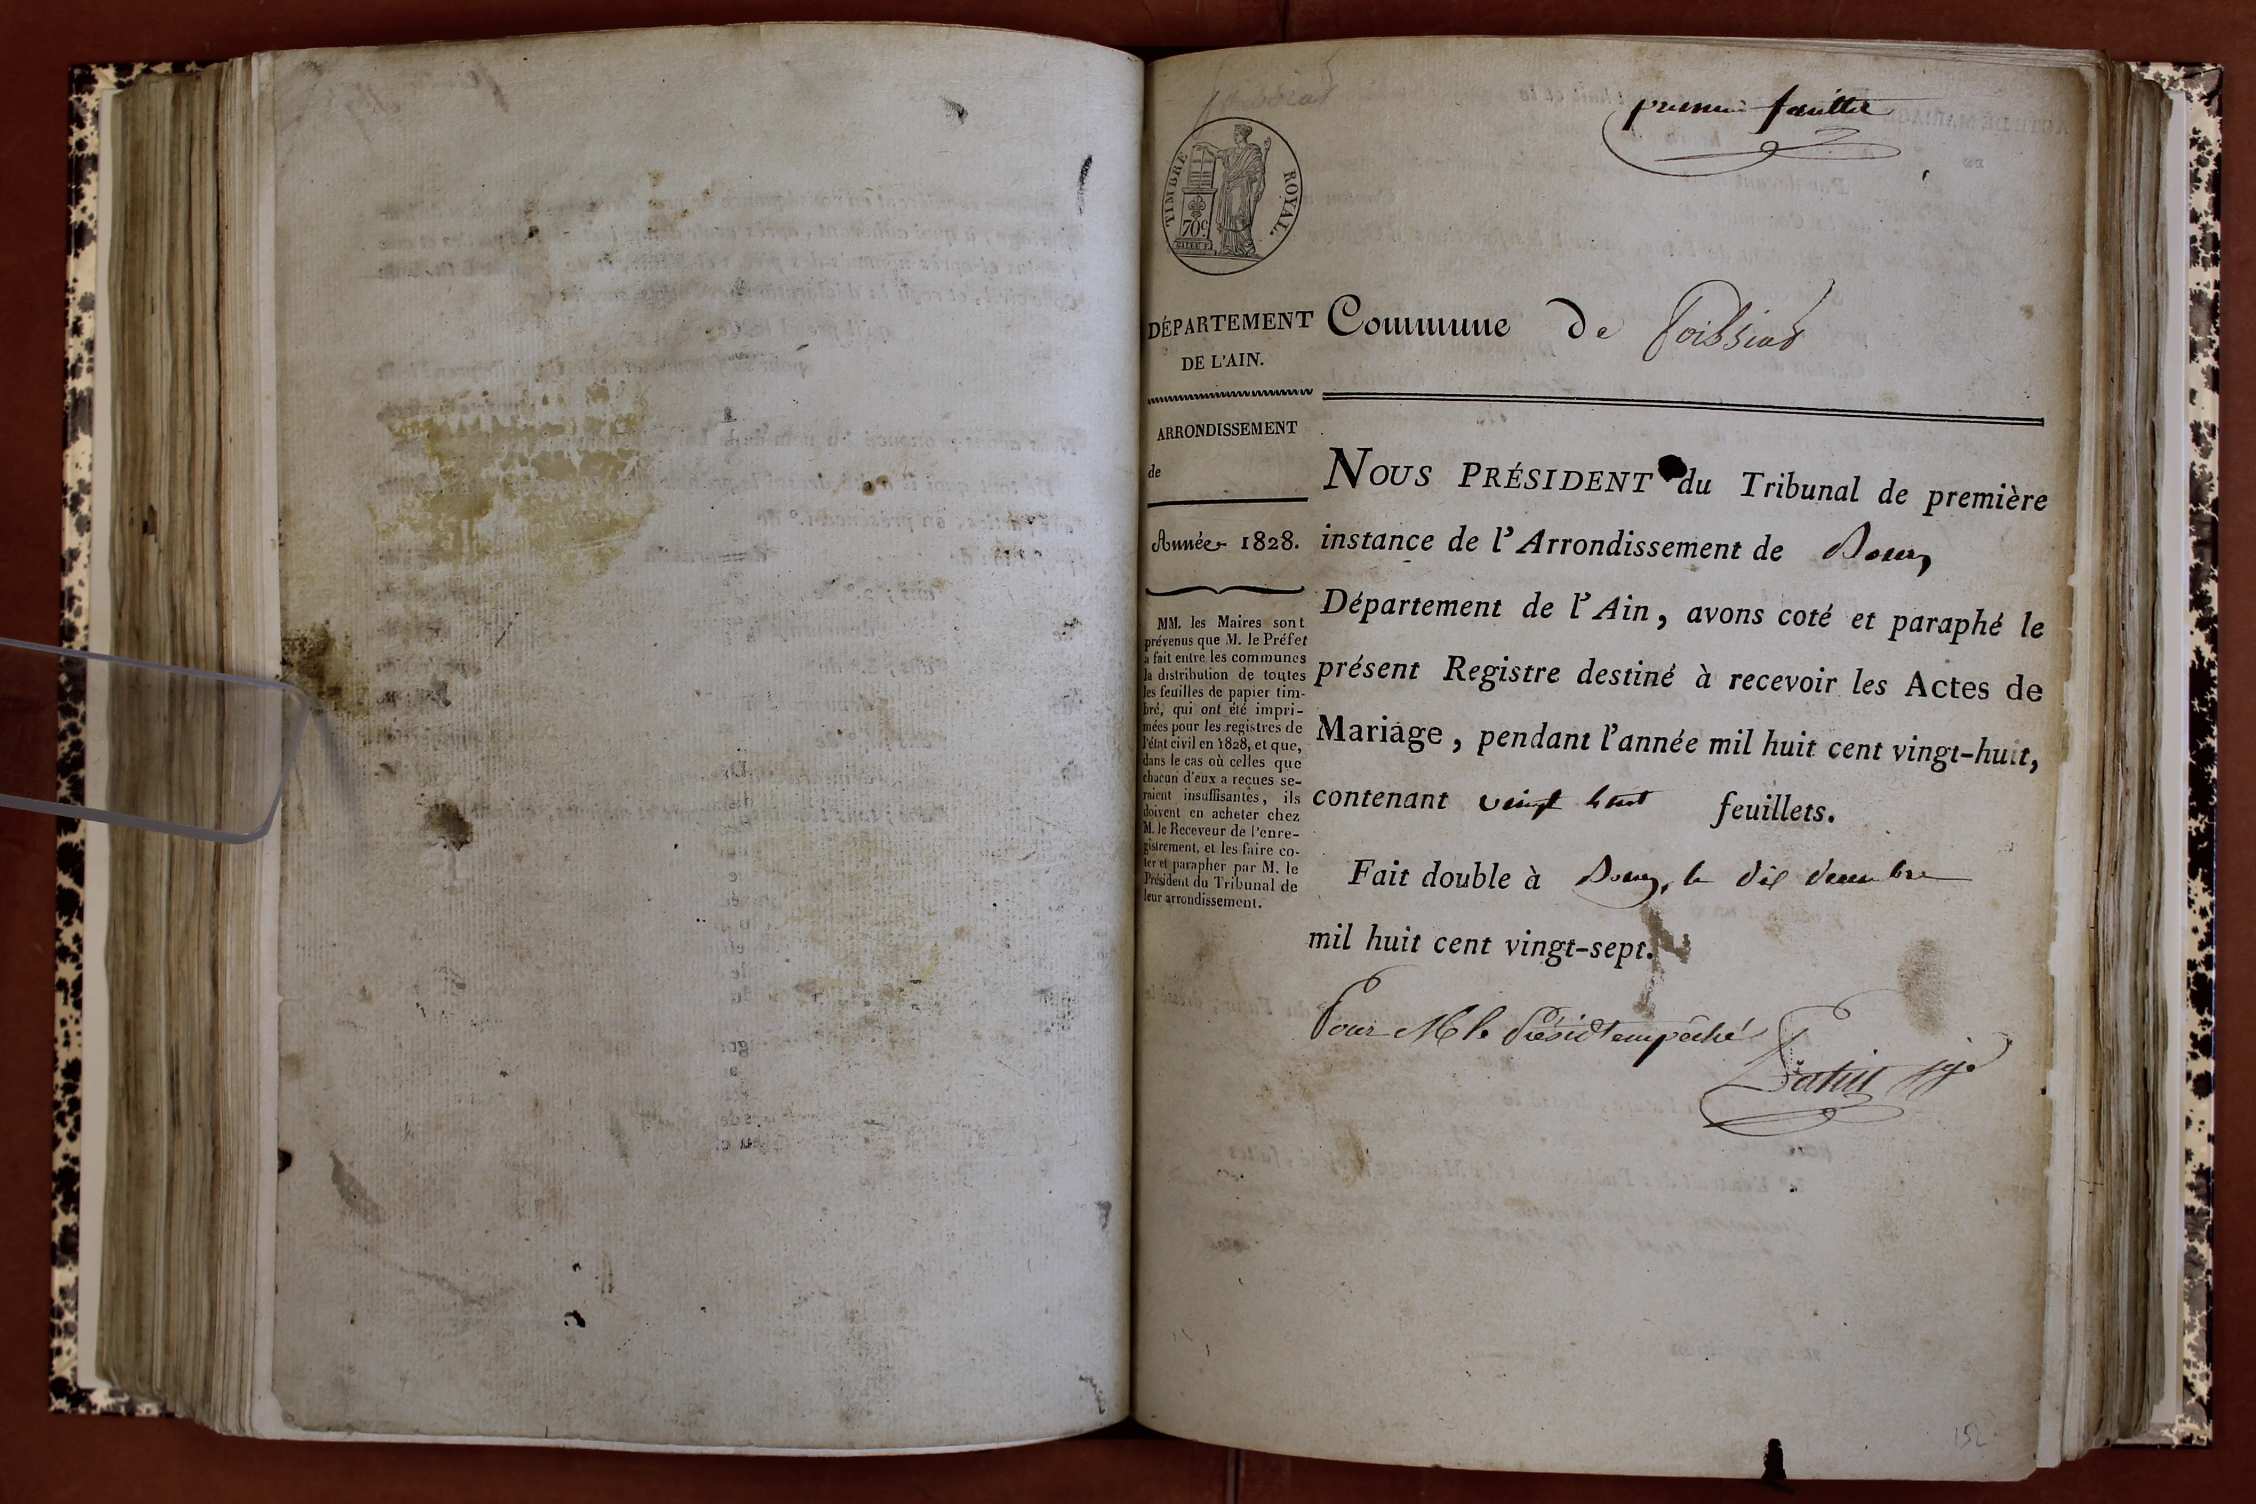 premier feuillet
TIMBRE ROYAL.
70 c.
DÉPARTEMENT
DE L'AIN.
ARRONDISSEMENT
de
Année 1828.
MM. les Maires sont
prévenus que M. le Préfet
a fait entre les communes
la distribution de toutes
les feuilles de papier tim-
bré, qui ont été impri-
mées pour les registres de
l'état civil en 1828, et que,
dans le cas où celles que
chacun d'eux a reçues se-
raient insuffisantes, ils
doivent en acheter chez
M. le Receveur de l'enre-
gistrement, et les faire co-
ter et parapher par M. le
Président du Tribunal de
leur arrondissement.
Commune de Foissiat
NOUS PRÉSIDENT du Tribunal de première
instance de l'Arrondissement de Bourg
Département de l'Ain, avons coté et paraphé le
présent Registre destiné à recevoir les Actes de
Mariage, pendant l'année mil huit cent vingt-huit,
contenant vingt huit feuillets.
Fait double à Bourg, le dix décembre
mil huit cent vingt-sept.
Pour M le Présidt empêché
152